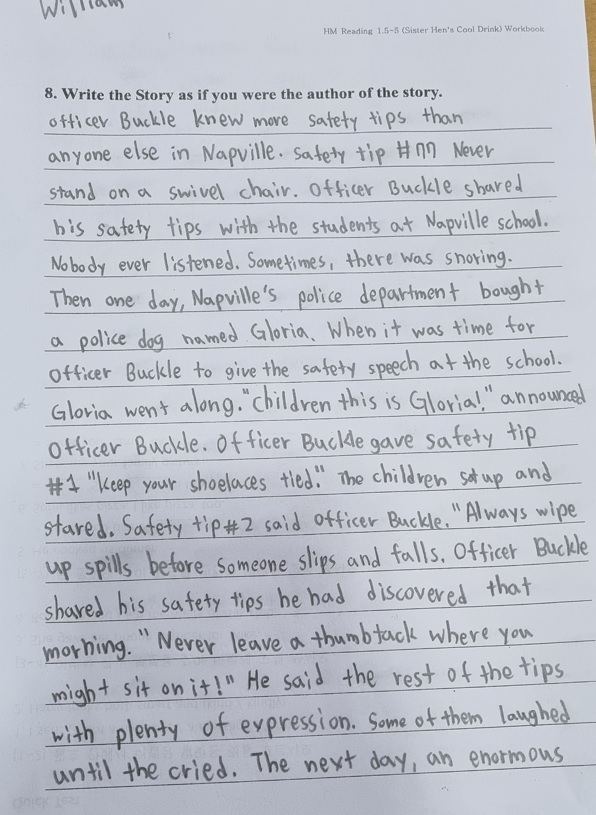 William
HM Reading 1.5-5 (Sister Hen's Cool Drink) Workbook
8. Write the Story as if you were the author of the story.
officer Buckle knew more safety tips than
anyone else in Napville. Safety tip #77 Never
stand on a swivel chair. Officer Buckle shared
his safety tips with the students at Napville school.
Nobody ever listened. Sometimes, there was snoring.
Then one day, Napville's police department bought
a police dog named Gloria. When it was time for
Officer Buckle to give the safety speech at the school.
Gloria went along. "Children this is Gloria!" announced
Officer Buckle. Officer Buckle gave safety tip
#1 "Keep your shoelaces tied." The children sat up and
stared. Safety tip #2 said officer Buckle. "Always wipe
up spills before someone slips and falls. Officer Buckle
shared his safety tips he had discovered that
morning." Never leave a thumbtack where you
might sit on it!" He said the rest of the tips
with plenty of expression. Some of them laughed
until the cried. The next day, an enormous